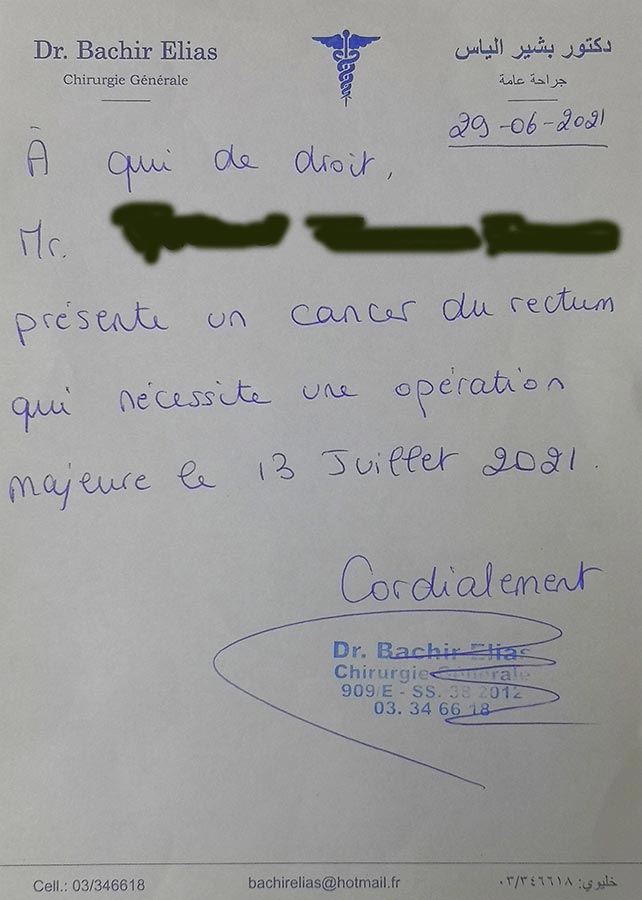 Dr. Bachir Elias
Chirurgie Générale
دكتور بشير الياس
جراحة عامة
29-06-2021
À qui de droit,
Mr.
présente un cancer du rectum
qui nécessite une opération
majeure le 13 Juillet 2021.
Cordialement
Dr. Bachir Elias
Chirurgie Générale
909/E - SS. 38 2012
03. 34 66 18
Cell.: 03/346618
bachirelias@hotmail.fr
خليوي: ٠٣/٣٤٦٦١٨